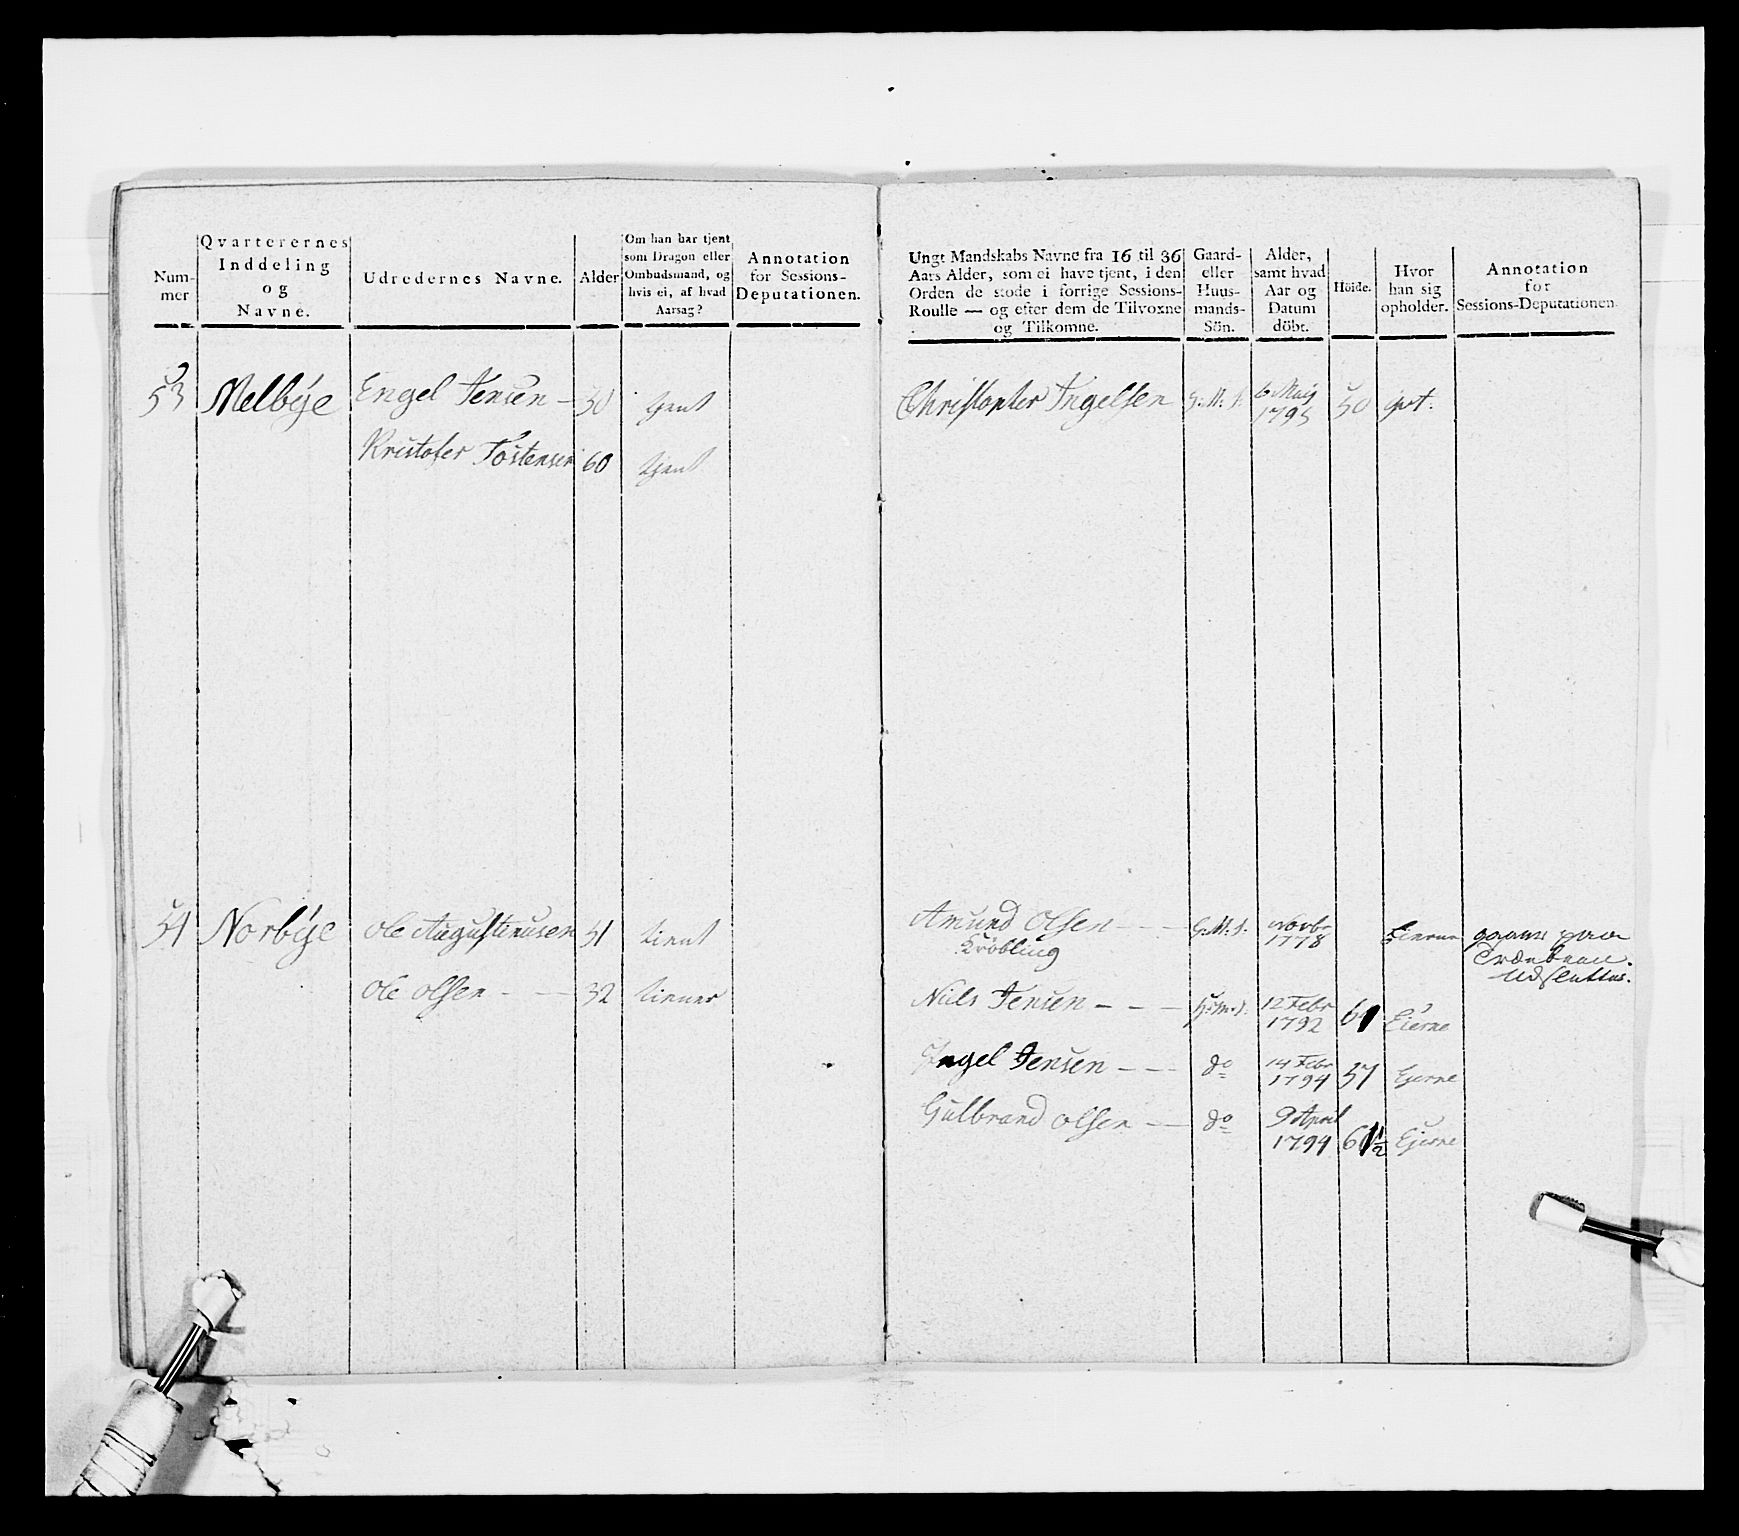 Num-
mer
Qvarterernes
Inddeling
og
Navne.
Udredernes Navne.
Alder
Om han har tjent
som Dragon eller
Ombudsmand, og
hvis ei, af hvad
Aarsag?
Annotation
for Sessions-
Deputationen.
53 Melbÿe Engel Jensen — 50 tjent
Kristofer Tostensen 60 tjent
54 Norbÿe Ole Augustinusen 51 tient
Ole Olsen - — 32 tiener
Ungt Mandskabs Navne fra 16 til 36
Aars Alder, som ei have tjent, i den
Orden de stode i forrige Sessions-
Roulle — og efter dem de Tilvoxne
og Tilkomne.
Gaard-
eller
Huus-
mands-
Sön.
Alder,
samt hvad
Aar og
Datum
döbt.
Höide.
Hvor
han sig
opholder.
Annotation
for
Sessions-Deputationen.
Christopher Ingelsen G. M. S. 6 Maij
1795 50 qvt.
Amund Olsen - — — G. M. S. Novbr
1778
Kröbling
Niils Jensen — - — H. M. S. 12 Febr
1792 61 Eierne
Engel Jensen — - — do 14 Febr
1794 57 Ejerne
Gulbrand Olsen — — do 9 April
1794 61½ Ejerne
Udslettes.